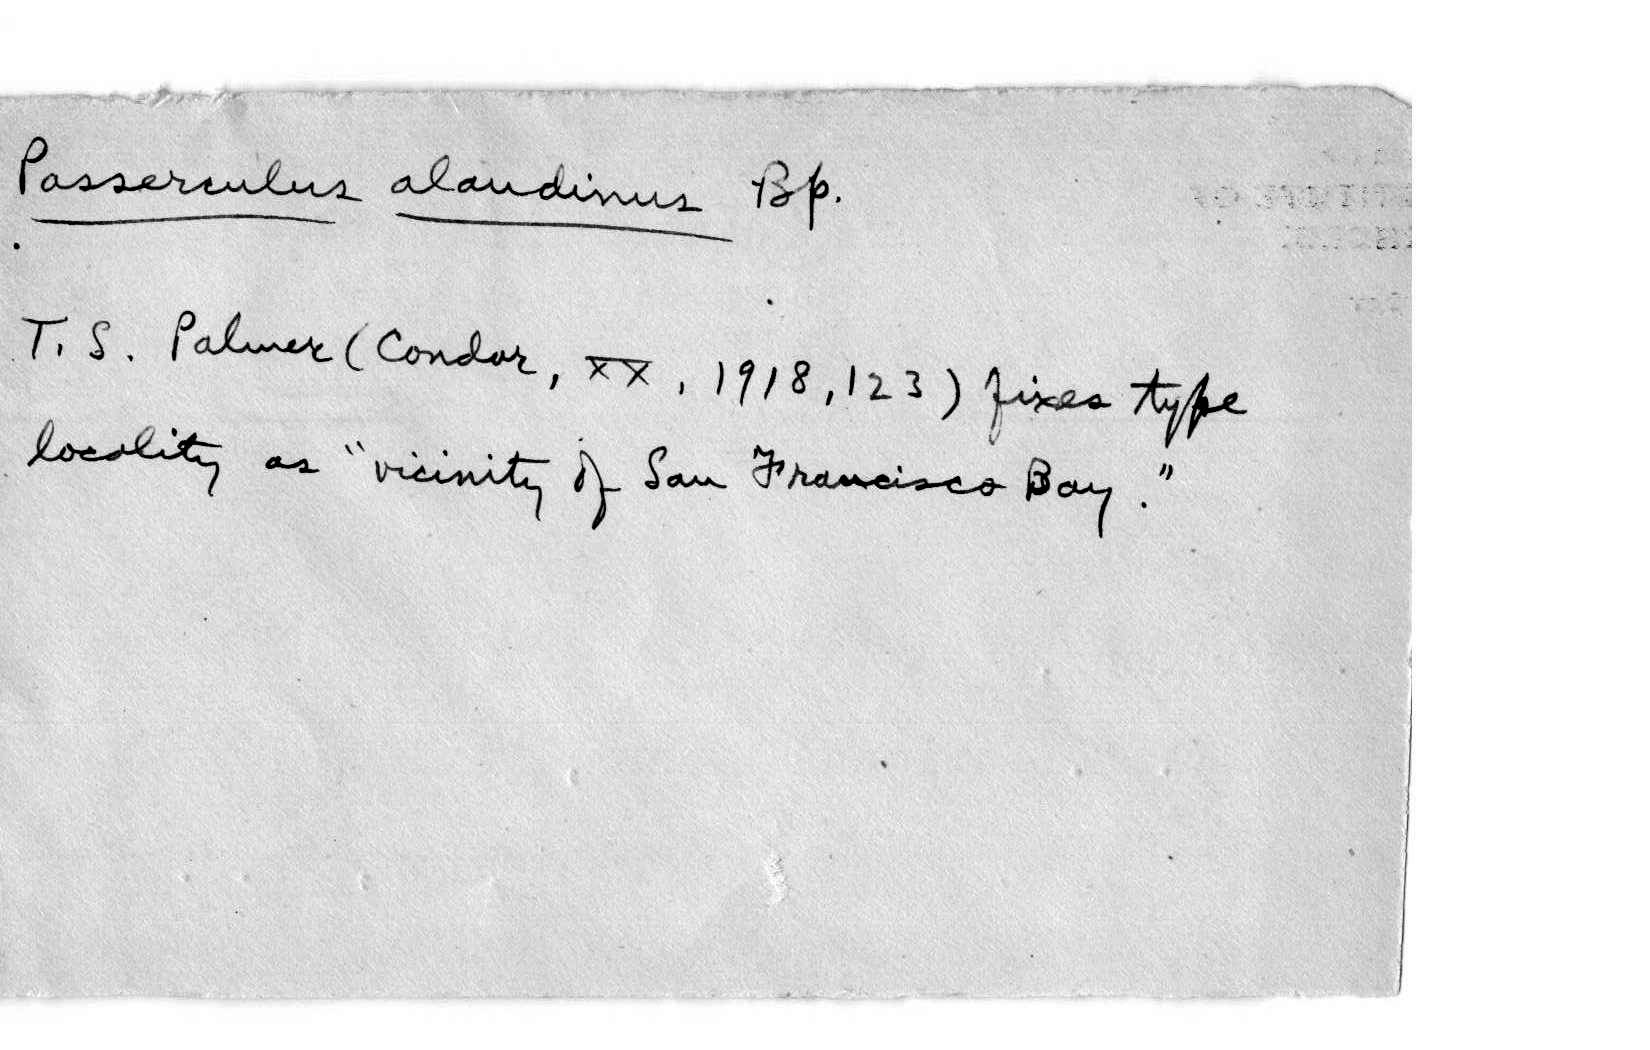 Passerculus alaudinus Bp.
T. S. Palmer (Condor, XX, 1918, 123) fixes type
locality as "vicinity of San Francisco Bay."